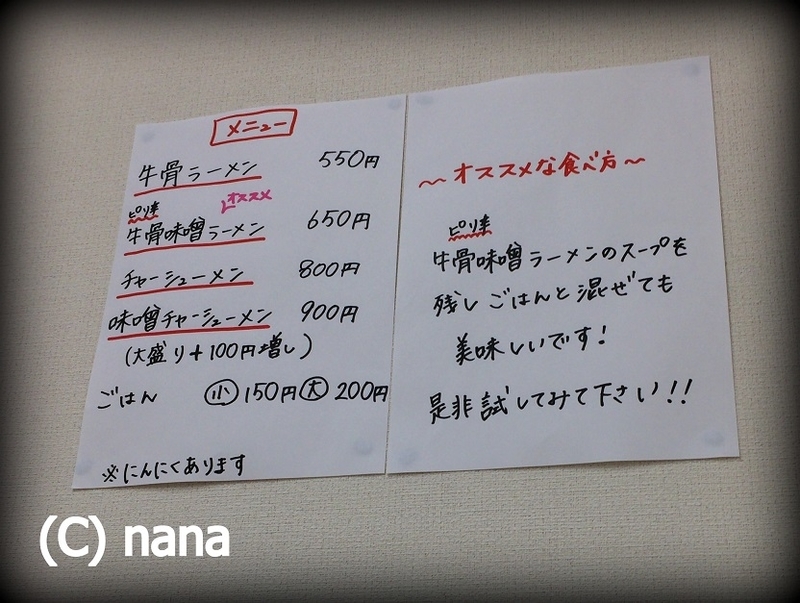 メニュー
牛骨ラーメン 550円
ピリ辛 オススメ
牛骨味噌ラーメン 650円
チャーシューメン 800円
味噌チャーシューメン 900円
(大盛り+100円増し)
ごはん 小 150円 大 200円
※にんにくあります
~オススメな食べ方~
ピリ辛
牛骨味噌ラーメンのスープを
残しごはんと混ぜても
美味しいです!
是非試してみて下さい!!
(C) nana